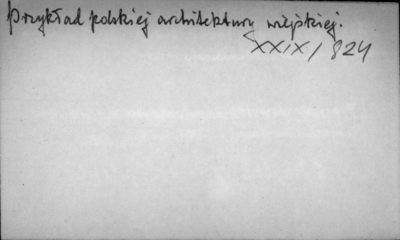 Przykład polskiej architektury wiejskiej.
XXIX/824